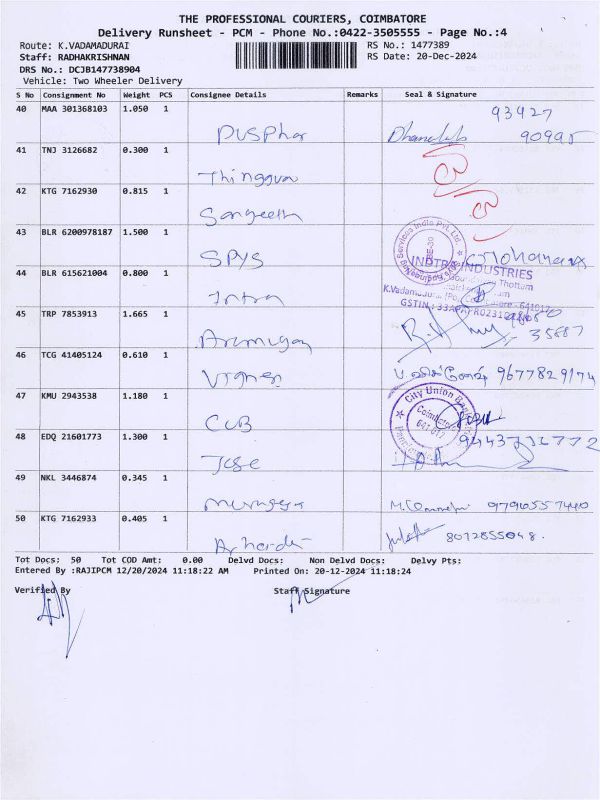 THE PROFESSIONAL COURIERS, COIMBATORE
Delivery Runsheet - PCM - Phone No.:0422-3505555 - Page No.:4
Route: K.VADAMADURAI RS No.: 1477389
Staff: RADHAKRISHNAN RS Date: 20-Dec-2024
DRS No.: DCJB147738904
Vehicle: Two Wheeler Delivery
S No Consignment No Weight PCS Consignee Details Remarks Seal & Signature
40 MAA 301368103 1.050 1
93427
Pusphar 90995
41 TNJ 3126682 0.300 1
42 KTG 7162930 0.815 1
Sangeeth
43 BLR 6200978187 1.500 1
SPYS
INDTRA INDUSTRIES
44 BLR 615621004 0.800 1
Intra
45 TRP 7853913 1.665 1
Arumugam 35887
46 TCG 41405124 0.610 1
Vignes 9677829174
47 KMU 2943538 1.180 1
City Union Bank
Coimbatore
CUB
48 EDQ 21601773 1.300 1
Jose
49 NKL 3446874 0.345 1
Murugesa
50 KTG 7162933 0.405 1
8012855048.
Tot Docs: 50 Tot COD Amt: 0.00 Delvd Docs: Non Delvd Docs: Delvy Pts:
Entered By :RAJIPCM 12/20/2024 11:18:22 AM Printed On: 20-12-2024 11:18:24
Verified By Staff Signature